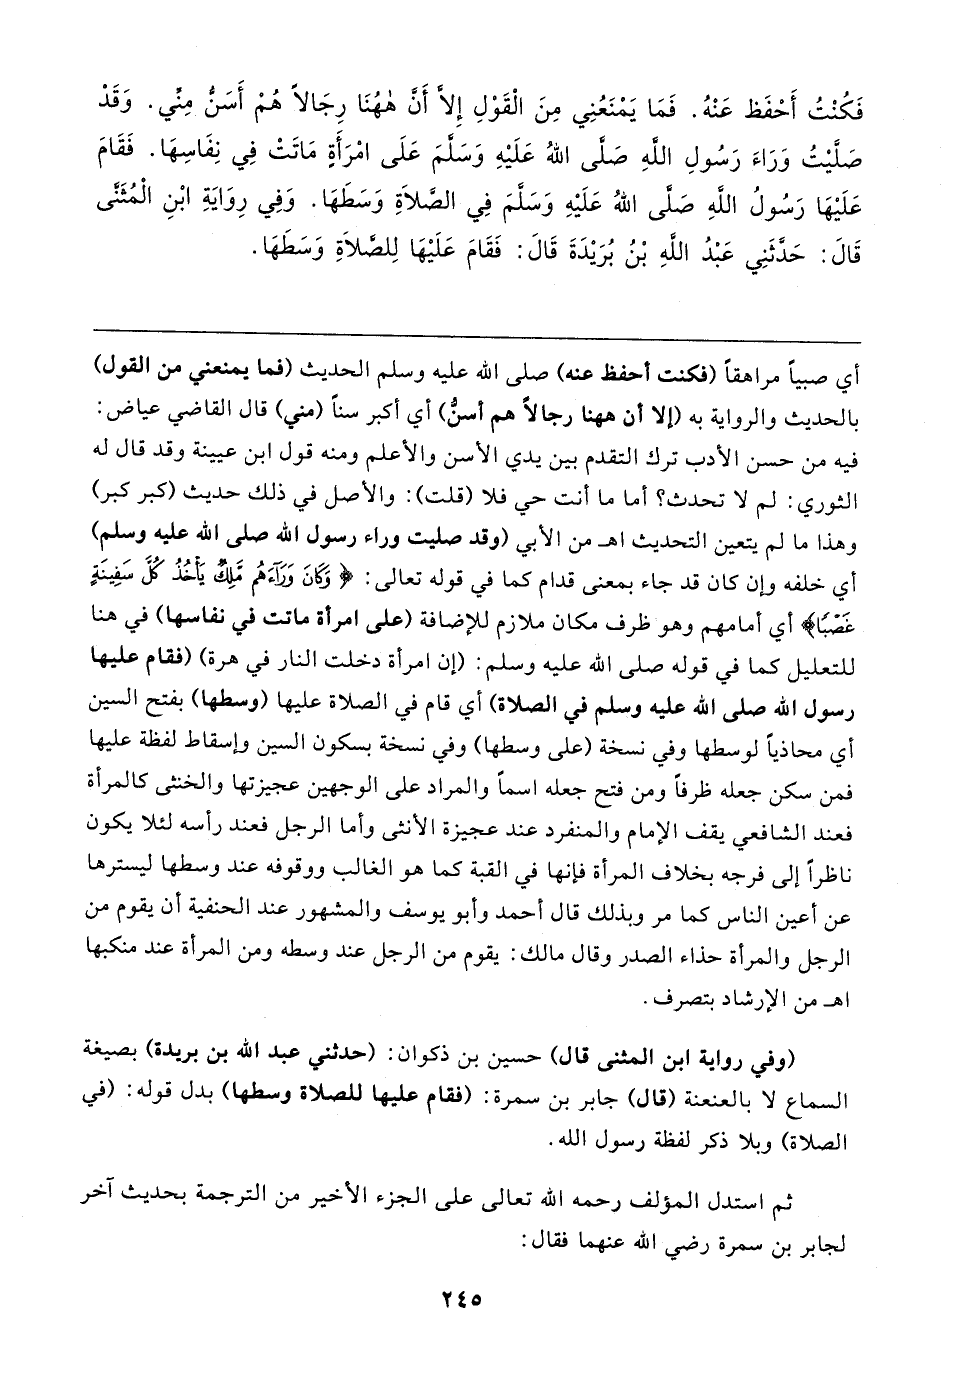 فَكُنْتُ أَحْفَظُ عَنْهُ. فَمَا يَمْنَعُنِي مِنَ الْقَوْلِ إِلَّا أَنَّ هٰهُنَا رِجَالاً هُمْ أَسَنُّ مِنِّي. وَقَدْ
صَلَّيْتُ وَرَاءَ رَسُولِ اللَّهِ صَلَّى اللهُ عَلَيْهِ وَسَلَّمَ عَلَى امْرَأَةٍ مَاتَتْ فِي نِفَاسِهَا. فَقَامَ
عَلَيْهَا رَسُولُ اللَّهِ صَلَّى اللهُ عَلَيْهِ وَسَلَّمَ فِي الصَّلَاةِ وَسَطَهَا. وَفِي رِوَايَةِ ابْنِ الْمُثَنَّى
قَالَ: حَدَّثَنِي عَبْدُ اللَّهِ بْنُ بُرَيْدَةَ قَالَ: فَقَامَ عَلَيْهَا لِلصَّلَاةِ وَسَطَهَا.
أي صبياً مراهقاً (فكنت أحفظ عنه) صلى الله عليه وسلم الحديث (فما يمنعني من القول)
بالحديث والرواية به (إلا أن ههنا رجالاً هم أسنُّ) أي أكبر سناً (مني) قال القاضي عياض:
فيه من حسن الأدب ترك التقدم بين يدي الأسن والأعلم ومنه قول ابن عيينة وقد قال له
الثوري: لم لا تحدث؟ أما ما أنت حي فلا (قلت): والأصل في ذلك حديث (كبر كبر)
وهذا ما لم يتعين التحديث اهـ من الأبي (وقد صليت وراء رسول الله صلى الله عليه وسلم)
أي خلفه وإن كان قد جاء بمعنى قدام كما في قوله تعالى: ﴿وَكَانَ وَرَآءَهُم مَّلِكٌ يَأْخُذُ كُلَّ سَفِينَةٍ
غَصْبًا﴾ أي أمامهم وهو ظرف مكان ملازم للإضافة (على امرأة ماتت في نفاسها) في هنا
للتعليل كما في قوله صلى الله عليه وسلم: (إن امرأة دخلت النار في هرة) (فقام عليها
رسول الله صلى الله عليه وسلم في الصلاة) أي قام في الصلاة عليها (وسطها) بفتح السين
أي محاذياً لوسطها وفي نسخة (على وسطها) وفي نسخة بسكون السين وإسقاط لفظة عليها
فمن سكن جعله ظرفاً ومن فتح جعله اسماً والمراد على الوجهين عجيزتها والخنثى كالمرأة
فعند الشافعي يقف الإمام والمنفرد عند عجيزة الأنثى وأما الرجل فعند رأسه لئلا يكون
ناظراً إلى فرجه بخلاف المرأة فإنها في القبة كما هو الغالب ووقوفه عند وسطها ليسترها
عن أعين الناس كما مر وبذلك قال أحمد وأبو يوسف والمشهور عند الحنفية أن يقوم من
الرجل والمرأة حذاء الصدر وقال مالك: يقوم من الرجل عند وسطه ومن المرأة عند منكبها
اهـ من الإرشاد بتصرف.
(وفي رواية ابن المثنى قال) حسين بن ذكوان: (حدثني عبد الله بن بريدة) بصيغة
السماع لا بالعنعنة (قال) جابر بن سمرة: (فقام عليها للصلاة وسطها) بدل قوله: (في
الصلاة) وبلا ذكر لفظة رسول الله.
ثم استدل المؤلف رحمه الله تعالى على الجزء الأخير من الترجمة بحديث آخر
لجابر بن سمرة رضي الله عنهما فقال:
٢٤٥